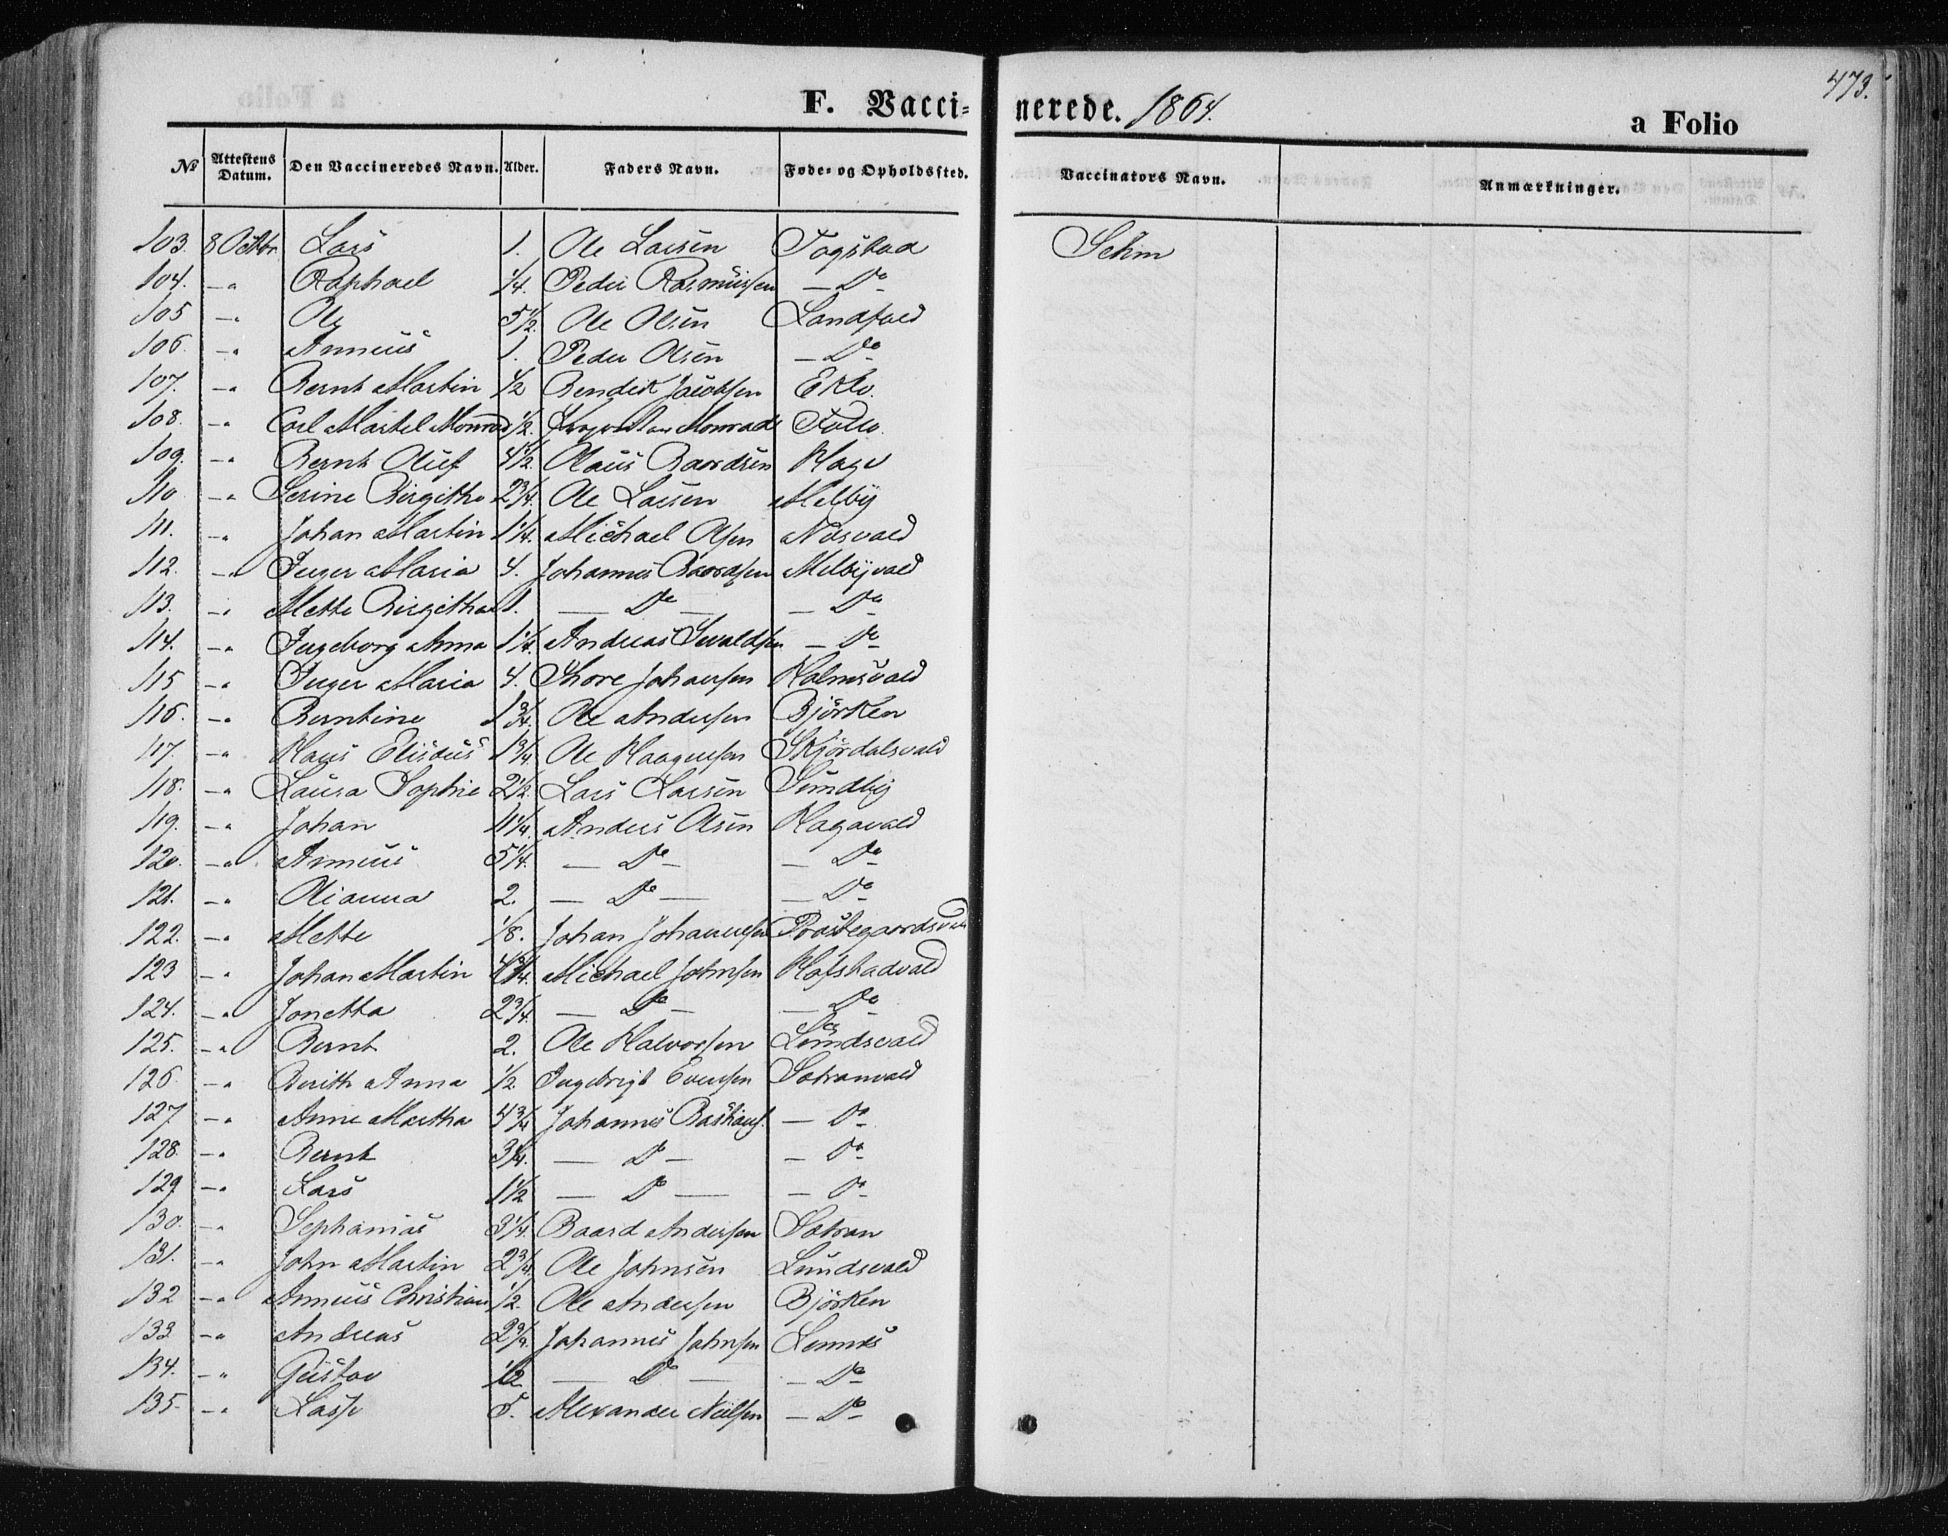 473.
F. Vaccinerede. 1864.
a Folio
№ Attestens Datum. Den Vaccineredes Navn. Alder. Faders Navn. Føde- og Opholdssted. Vaccinators Navn. Anmærkninger.
103. 8 Octbr. Lars 1. Ole Larsen Togstad Sehm
104. — " Raphael 1/4. Peder Rasmussen — Do —
105 — " Ole 5 1/2. Ole Olsen
106. — " Anneus 1. Peder Olsen — Do —
107. — " Bernt Martin 1/2 Bendik Jacobsen Eklo.
108. — " Carl Martel Monrad 1/2. Monrad Follo.
109. — " Bernt Oluf 4 1/2. Olaus Baardsen Hage
110 — " Serine Birgitha 2 3/4. Ole Larsen Melby
111. — " Johan Martin 1 1/4. Michael Olsen Næsvald
112. — " Inger Maria 4. Johannes Baardsen Melbyvald
113. — " Mette Birgitha 1. — Do — — Do —
114. — " Ingeborg Anna 1 1/4. Andreas Iwaldsen — Do —
115 — " Inger Maria 4. Thore Johansen Holmsvald
116. — " Berntine 1 3/4. Ole Andersen Björken
117 — " Hans Elisæus 1 3/4. Ole Haagensen Skjördalsvald
118. — " Laura Sophie 2 1/2. Lars Larsen Sundby
119. — " Johan 11 1/4. Anders Olsen Hagavald
120. — " Anneus 5 1/4. — Do — — Do —
121. — " Olianna 2. — Do — — Do —
122. — " Mette 1/8. Johan Johannesen Præstegaardsvald
123 — " Johan Martin Michael Johnsen Hofstadvald
124. — " Jonetta 2 3/4. — Do — — Do —
125. — " Bernt 2. Ole Halvorsen Lundsvald
126 — " Berith Anna 1/2 Ingebrigt Evensen Sætranvald
127 — " Anne Martha 4 3/4 Johannes Bastians. — Do —
128. — " Bernt 3/4. — Do — — Do —
129. — " Lars 1 1/2 — Do — — Do —
130. — " Sephanias 3 1/4. Baard Andersen Sætran
131. — " John Martin 2 3/4. Ole Johnsen Lundsvald
132 — " Anneus Christian 1/2. Ole Andersen Björken
133 — " Andreas Johannes Johnsen Lennes
134. — " Gustav 1/2 — Do — — Do —
135. — " Lasse 5. Alexander Nilsen — Do —